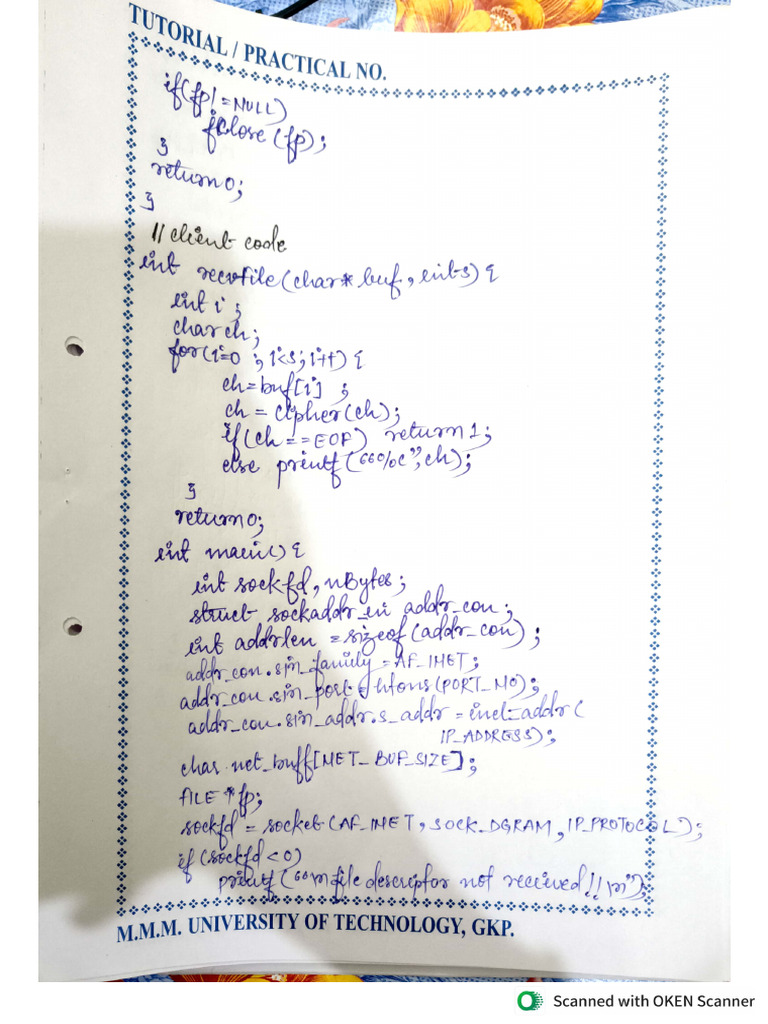 TUTORIAL / PRACTICAL NO.
if(fp!=NULL)
fclose(fp);
}
return 0;
}
//client code
int recvfile(char* buf, int s){
int i;
char ch;
for(i=0; i<s; i++){
ch=buf[i];
ch = cipher(ch);
if(ch==EOF) return 1;
else printf("%c", ch);
}
return 0;
int main(){
int sockfd, nBytes;
struct sockaddr_in addr_con;
int addrlen = sizeof(addr_con);
addr_con.sin_family = AF_INET;
addr_con.sin_port = htons(PORT_NO);
addr_con.sin_addr.s_addr = inet_addr(
IP_ADDRESS);
char net_buff[NET_BUF_SIZE];
FILE *fp;
sockfd = socket(AF_INET, SOCK_DGRAM, IP_PROTOCOL);
if(sockfd<0)
printf("\n file descriptor not received!!\n");
M.M.M. UNIVERSITY OF TECHNOLOGY, GKP.
Scanned with OKEN Scanner